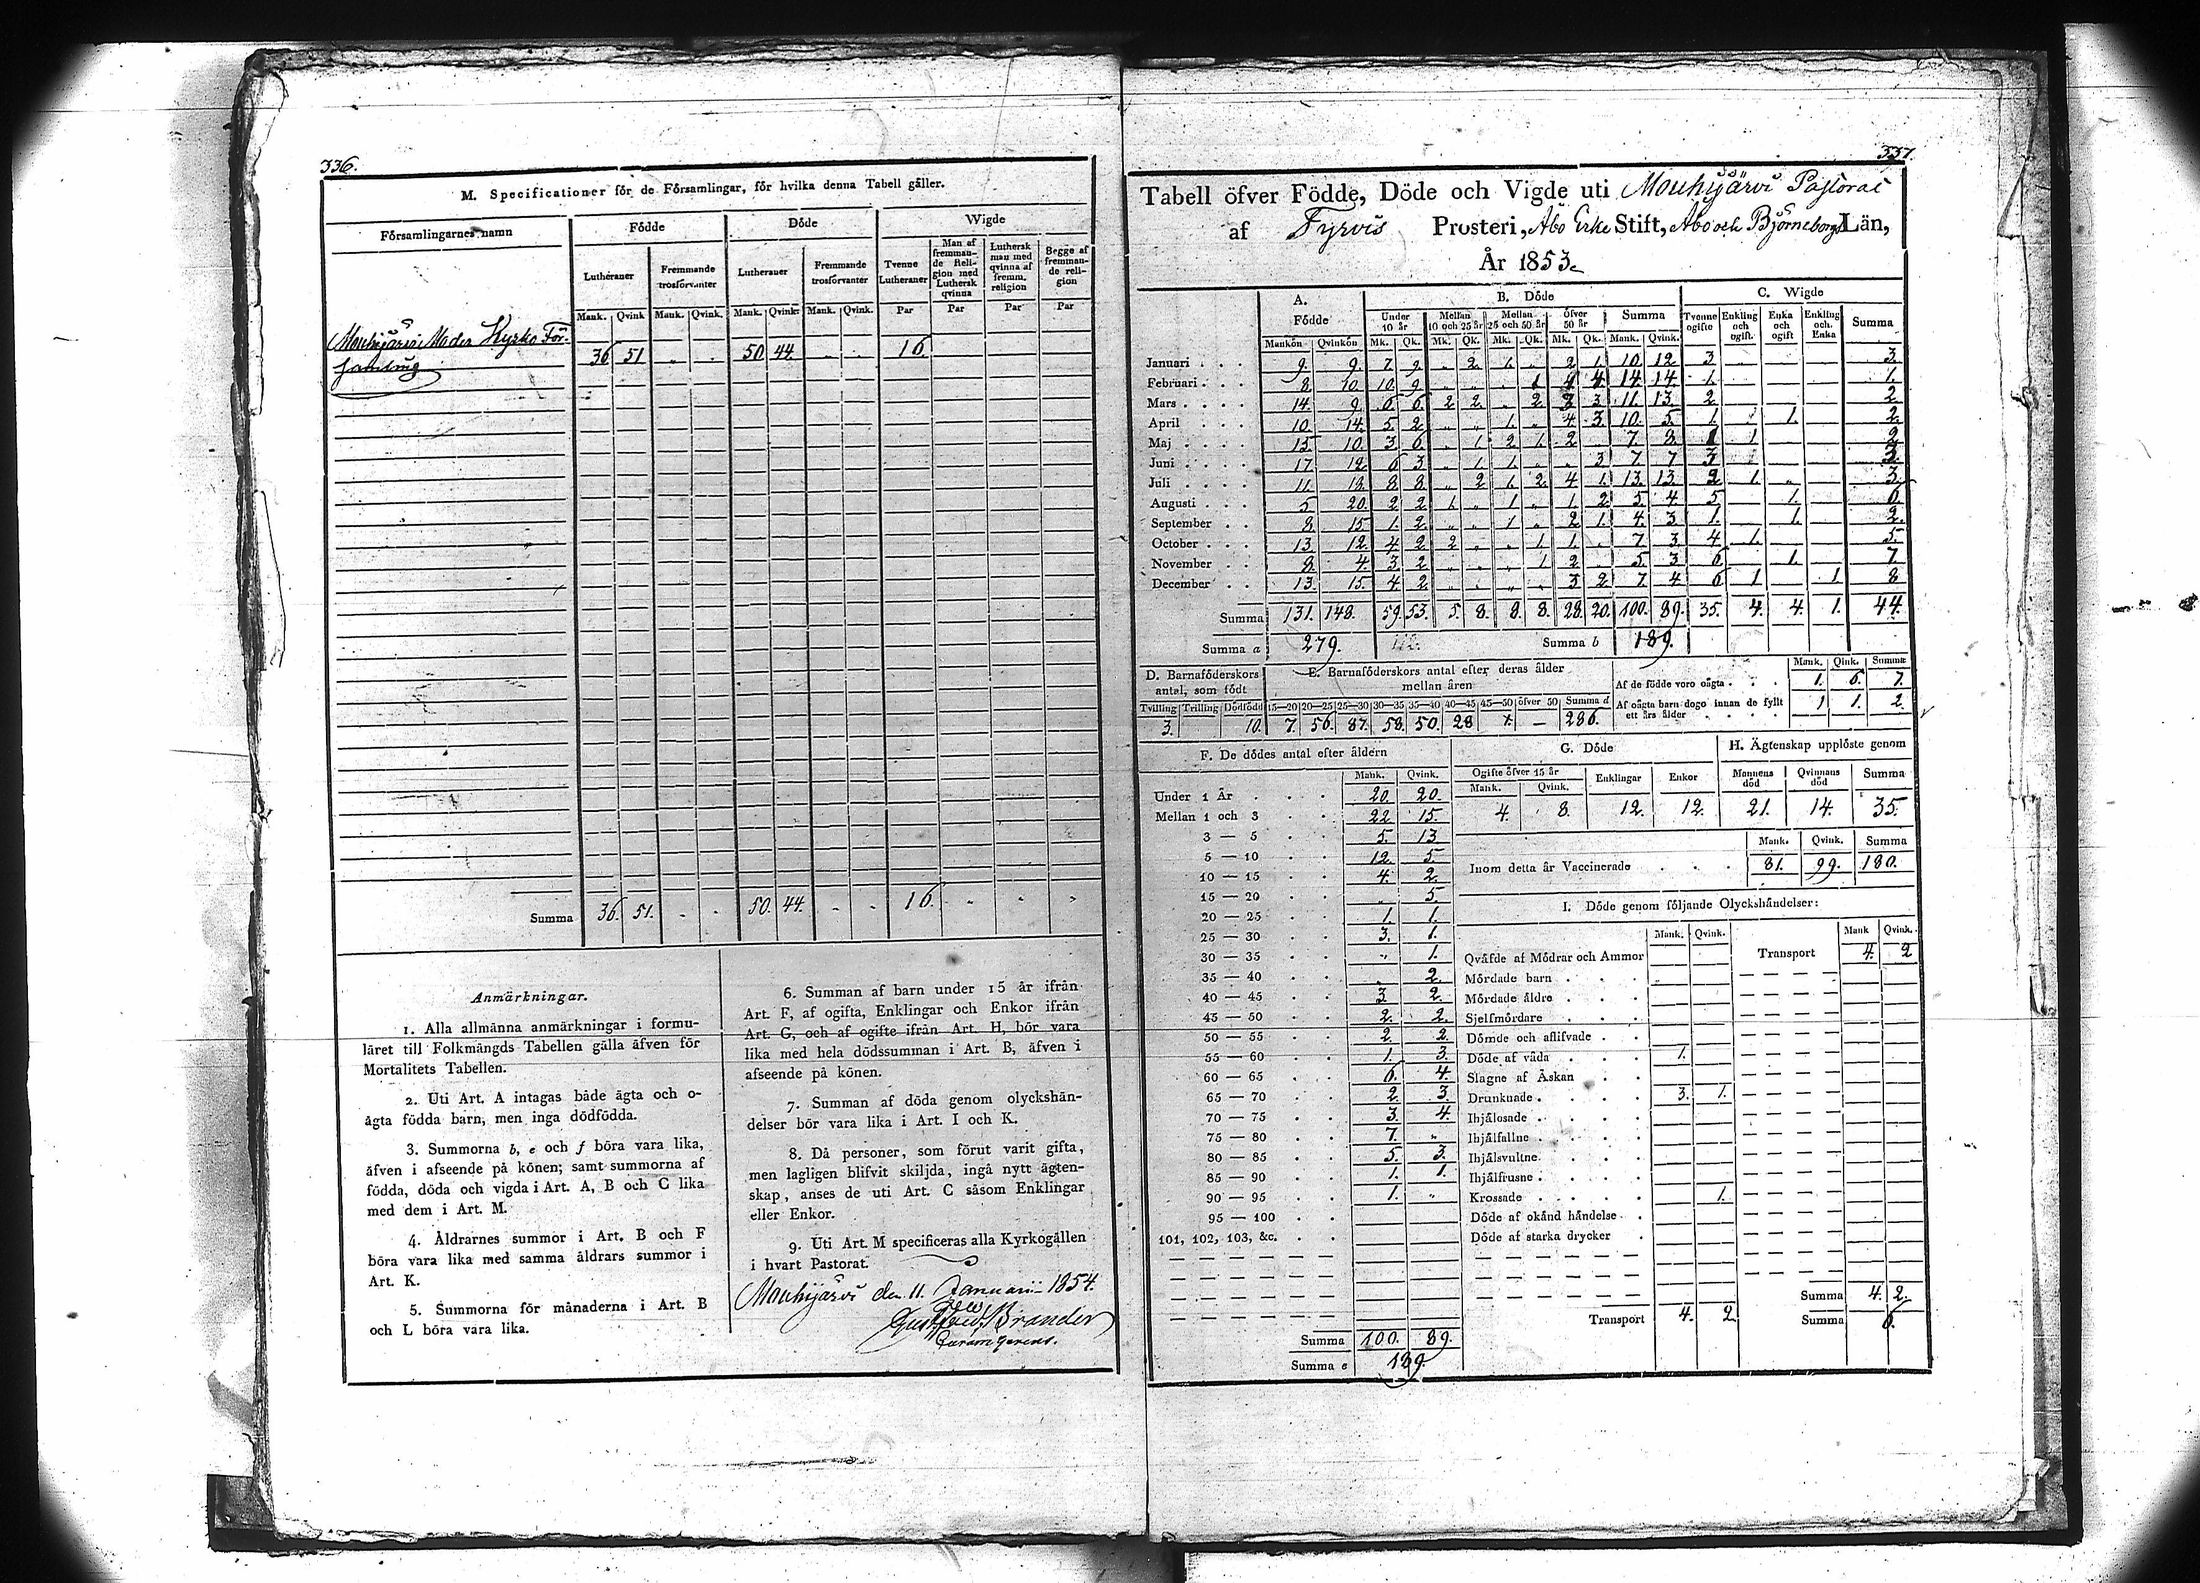 336.
M. Specificationer för de Församlingar, för hvilka denna Tabell gäller.
Församlingarnes namn | Födde | Döde | Wigde
Lutheraner | Fremmande trosförvanter | Lutheraner | Fremmande trosförvanter | Tvenne Lutheraner | Man af fremmande Religion med Luthersk qvinna | Luthersk man med qvinna af fremm. religion | Begge af fremmande religion
Mank. | Qvink | Mank. | Qvink. | Mank. | Qvink. | Mank. | Qvink. | Par | Par | Par | Par
Mouhijärvi Moder Kyrko För-
samling 36 51 " " 50 44 " " 16
Summa 36. 51. " " 50. 44. " " 16. " " "
Anmärkningar.
1. Alla allmänna anmärkningar i formu-
läret till Folkmängds Tabellen gälla äfven för
Mortalitets Tabellen.
2. Uti Art. A intagas både ägta och o-
ägta födda barn, men inga dödfödda.
3. Summorna b, e och f böra vara lika,
äfven i afseende på könen; samt summorna af
födda, döda och vigda i Art. A, B och C lika
med dem i Art. M.
4. Åldrarnes summor i Art. B och F
böra vara lika med samma åldrars summor i
Art. K.
5. Summorna för månaderna i Art. B
och L böra vara lika.
6. Summan af barn under 15 år ifrån
Art. F, af ogifta, Enklingar och Enkor ifrån
Art. G, och af ogifte ifrån Art. H, bör vara
lika med hela dödssumman i Art. B, äfven i
afseende på könen.
7. Summan af döda genom olyckshän-
delser bör vara lika i Art. I och K.
8. Då personer, som förut varit gifta,
men lagligen blifvit skiljda, ingå nytt ägten-
skap, anses de uti Art. C såsom Enklingar
eller Enkor.
9. Uti Art. M specificeras alla Kyrkogällen
i hvart Pastorat.
Mouhijärvi den 11. Januarii 1854.
Brander
337
Tabell öfver Födde, Döde och Vigde uti Mouhijärvi Pastorat
af Tyrvis Prosteri, Åbo Erke Stift, Åbo och Björneborgs Län,
År 1853
A. Födde | B. Döde | C. Wigde
Under 10 år | Mellan 10 och 25 år | Mellan 25 och 50 år | öfver 50 år | Summa | Tvenne ogifte | Enkling och ogift. | Enka och ogift | Enkling och Enka | Summa
Mankön | Qvinkön | Mk. | Qk. | Mk. | Qk. | Mk. | Qk. | Mk. | Qk. | Mank. | Qvink.
Januari 9. 9. 7 9. " 2. 1. " 2 1. 10. 12. 3 3.
Februari 8 10 10. 9 " " " 1 4 4. 14. 14. 1. 1.
Mars 14. 9. 6. 6. 2 2. " 2. 3 3. 11. 13. 2. 2.
April 10. 14. 5 2. " " 1. " 4 3. 10. 5. 1. 1. 2.
Maj 15. 10. 3 6. " 1. 2. 1. 2 " 7. 8. 1 1 2
Juni 17 12. 6 3 " 1. 1. " " 3. 7. 7 3 3.
Juli 11. 18. 8 8. " 2 1. 2. 4 1. 13. 13. 2 1. 3
Augusti 5 20. 2 2 1. " 1 " 1. 2 5 4 5 1. 6.
September 8. 15 1. 2. " " 1 " 2 1. 4. 3 1. 1. 2.
October 13. 12. 4 2 2 " " 1 1. " 7. 3. 4 1. 5.
November 8. 4. 3 2 " " " 1 2 " 5. 3 6 1. 7.
December 13. 15. 4 2 " " " " 3 2 7 4 6 1 1 8
Summa 131. 148. 59. 53. 5. 8. 8. 8. 28. 20. 100. 89. 35. 4. 4. 1. 44.
Summa a 279. Summa b 189.
D. Barnaföderskors antal, som födt
Tvilling | Trilling | Dödfödd
3. 10.
E. Barnaföderskors antal efter deras ålder
mellan åren
15—20 | 20—25 | 25—30 | 30—35 | 35—40 | 40—45 | 45—50 | öfver 50 | Summa d
7. 56. 87. 58. 50. 28 — 286.
Mank. | Qink. | Summa
Af de födde voro oägta 1. 6. 7.
Af oägta barn dogo innan de fyllt
ett års ålder 1 1. 2.
F. De dödes antal efter åldern
Mank. | Qvink.
Under 1 År 20. 20.
Mellan 1 och 3 22 15.
3 — 5 5. 13
5 — 10 12. 5.
10 — 15 4. 2.
15 — 20 " 5.
20 — 25 1. 1.
25 — 30 3. 1.
30 — 35 " 1.
35 — 40 " 2.
40 — 45 3. 2.
45 — 50 2. 2.
50 — 55 2. 2.
55 — 60 1. 3.
60 — 65 6. 4.
65 — 70 2. 3.
70 — 75 3. 4.
75 — 80 7. "
80 — 85 5. 3.
85 — 90 1. 1.
90 — 95 1. "
95 — 100
101, 102, 103, &c.
Summa 100. 89.
Summa e 189.
G. Döde
Ogifte öfver 15 år | Enklingar | Enkor
Mank. | Qvink.
4. 8. 12. 12.
H. Ägtenskap upplöste genom
Mannens död | Qvinnans död | Summa
21. 14. 35.
Mank. | Qvink. | Summa
Inom detta år Vaccinerade 81. 99. 180.
I. Döde genom följande Olyckshändelser:
Mank. | Qvink. | Mank | Qvink.
Qväfde af Mödrar och Ammor
Mördade barn
Mördade äldre
Sjelfmördare
Dömde och aflifvade
Döde af våda 1.
Slagne af Åskan
Drunknade 3. 1.
Ihjälosade
Ihjälfallne
Ihjälsvultne
Ihjälfrusne
Krossade 1.
Döde af okänd händelse
Döde af starka drycker
Transport 4. 2.
Transport 4. 2
Summa 4. 2.
Summa 6.